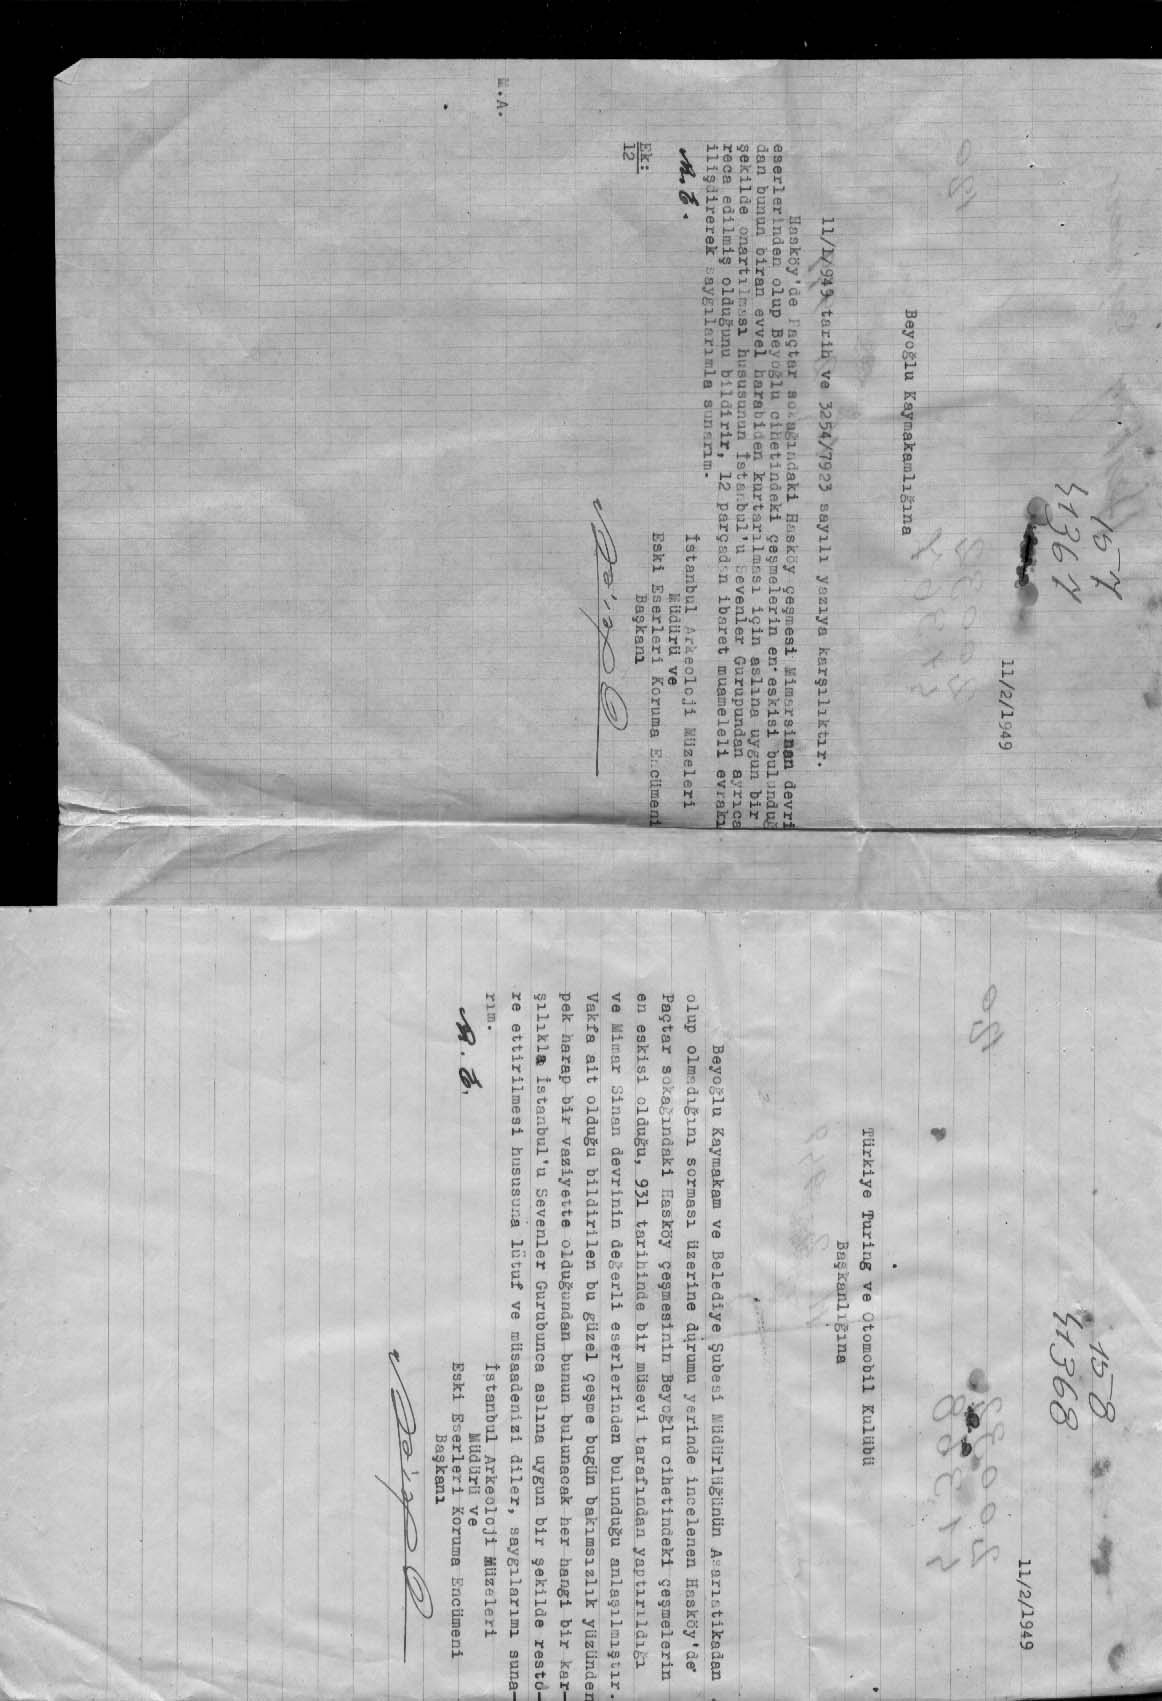 157
41367
11/2/1949
Beyoğlu Kaymakamlığına
11/1/949 tarih ve 3254/7923 sayılı yazıya karşılıktır.
Hasköy'de Paçtar sokağındaki Hasköy çeşmesi Mimarsinan devri
eserlerinden olup Beyoğlu cihetindeki çeşmelerin en eskisi bulunduğ
dan bunun biran evvel harabiden kurtarılması için aslına uygun bir
şekilde onartılması hususunun İstanbul'u Sevenler Gurupundan ayrıca
reca edilmiş olduğunu bildirir, 12 parçadan ibaret muameleli evrakı
ilişdirerek saygılarımla sunarım.
İstanbul Arkeoloji Müzeleri
Müdürü ve
Eski Eserleri Koruma Encümeni
Başkanı
Ek:
12
M.A.
158
41368
11/2/1949
Türkiye Turing ve Otomobil Kulübü
Başkanlığına
Beyoğlu Kaymakam ve Belediye Şubesi Müdürlüğünün Asarıatikadan
olup olmadığını sorması üzerine durumu yerinde incelenen Hasköy'de
Paçtar sokağındaki Hasköy çeşmesinin Beyoğlu cihetindeki çeşmelerin
en eskisi olduğu, 931 tarihinde bir müsevi tarafından yaptırıldığı
ve Mimar Sinan devrinin değerli eserlerinden bulunduğu anlaşılmıştır.
Vakfa ait olduğu bildirilen bu güzel çeşme bugün bakımsızlık yüzünden
pek harap bir vaziyette olduğundan bunun bulunacak her hangi bir kar-
şılıkla İstanbul'u Sevenler Gurubunca aslına uygun bir şekilde resto-
re ettirilmesi hususuna lütuf ve müsaadenizi diler, saygılarımı suna-
rım.
İstanbul Arkeoloji Müzeleri
Müdürü ve
Eski Eserleri Koruma Encümeni
Başkanı